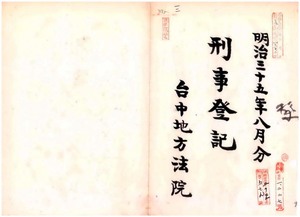 明治三十五年八月分
刑事登記
台中地方法院